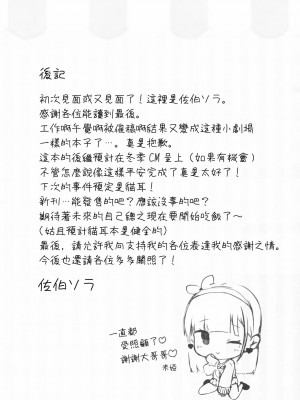 後記
初次見面或又見面了！這裡是佐伯ソラ。
感謝各位能讀到最後。
工作啊午覺啊被催稿啊結果又變成這種小劇場
一樣的本子了...真是抱歉。
這本的後繼預計在冬季CM呈上（如果有機會）
不管怎麼說像這樣平安完成了真是太好了！
下次的事件預定是貓耳！
新刊…能發售的吧？應該沒事的吧？
期待著未來的自己總之現在要開始吃飯了～
(姑且預計貓耳本是健全的)
最後，請允許我向支持我的各位表達我的感謝之情。
今後也還請各位多多關照了！
佐伯ソラ
一直都
受照顧了♡
謝謝大哥哥♡